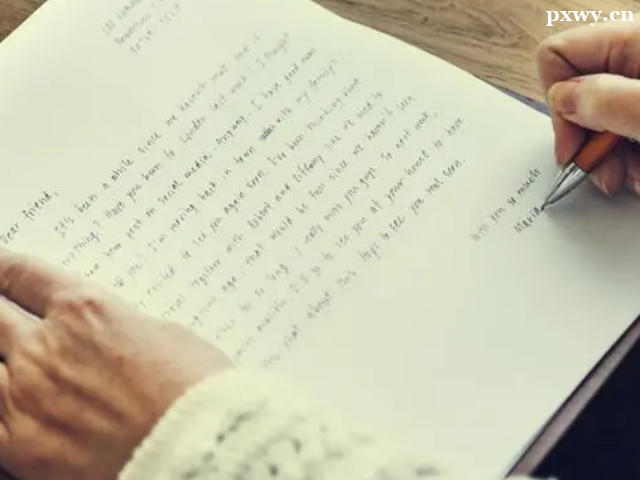 pxwy.cn
Dear friend,
It's been a while since we haven't met. How is
everything? Have you been to London last week? I thought
your post on social media. Anyway, I have good news
to you! I'm moving back in town with my family.
excited to see you again soon. I've been thinking about
travel together with Robert and Tiffany like we used to
ago. that would be fun since we haven't seen
each for so long. I really miss you guys. So next week,
available, I'll go to see you at your house to have
chat about this. Hope to see you real soon.
Miss you so much
Maria